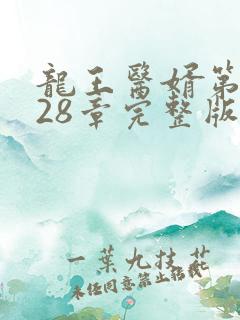 龍王醫婿第
28章完整版
一葉九枝花
未任同意禁止转载